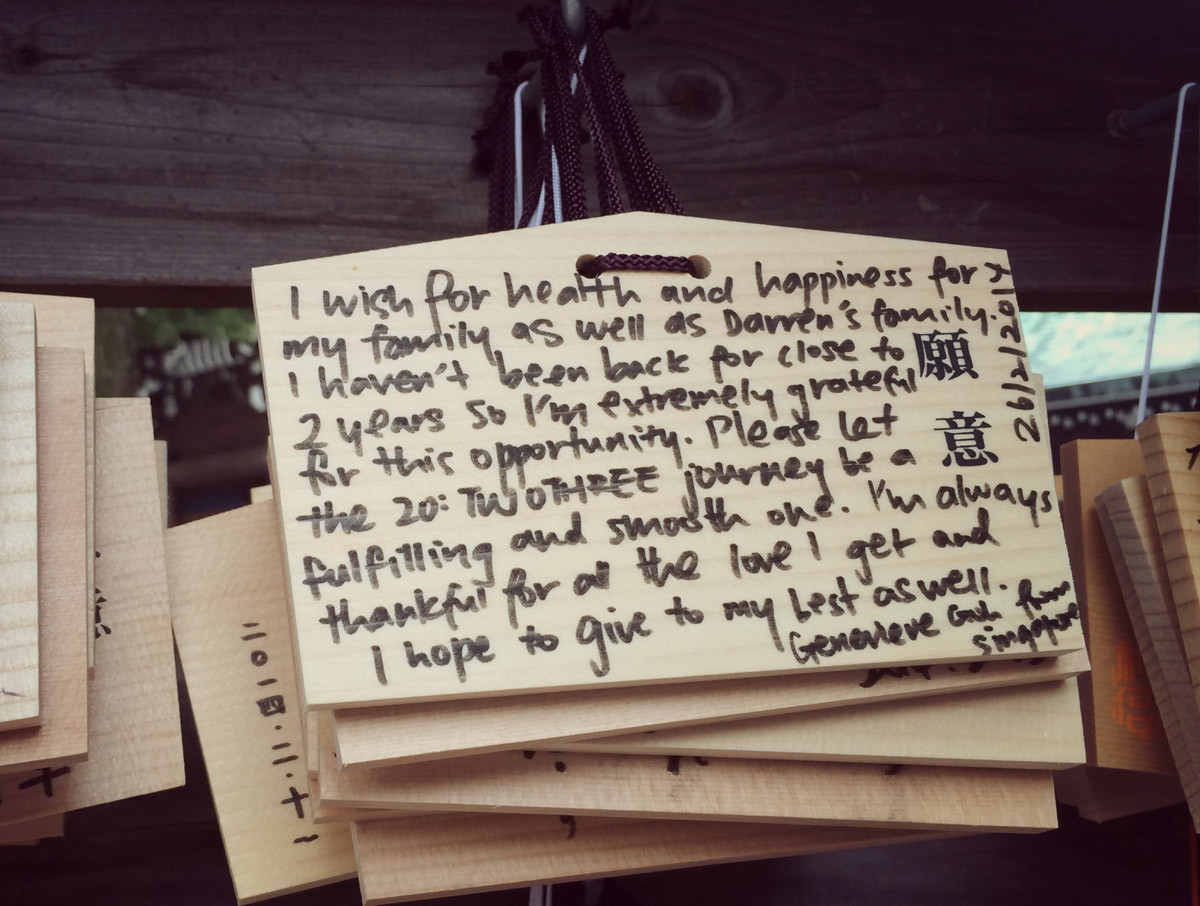 I wish for health and happiness for
my family as well as Darren's family.
I haven't been back for close to
2 years so I'm extremely grateful
for this opportunity. Please let
the 20: TWOTHREE journey be a
fulfilling and smooth one. I'm always
thankful for all the love I get and
I hope to give to my best as well.
Genevieve Goh from
Singapore
願意
26/2/2014
二〇一四・二・十一